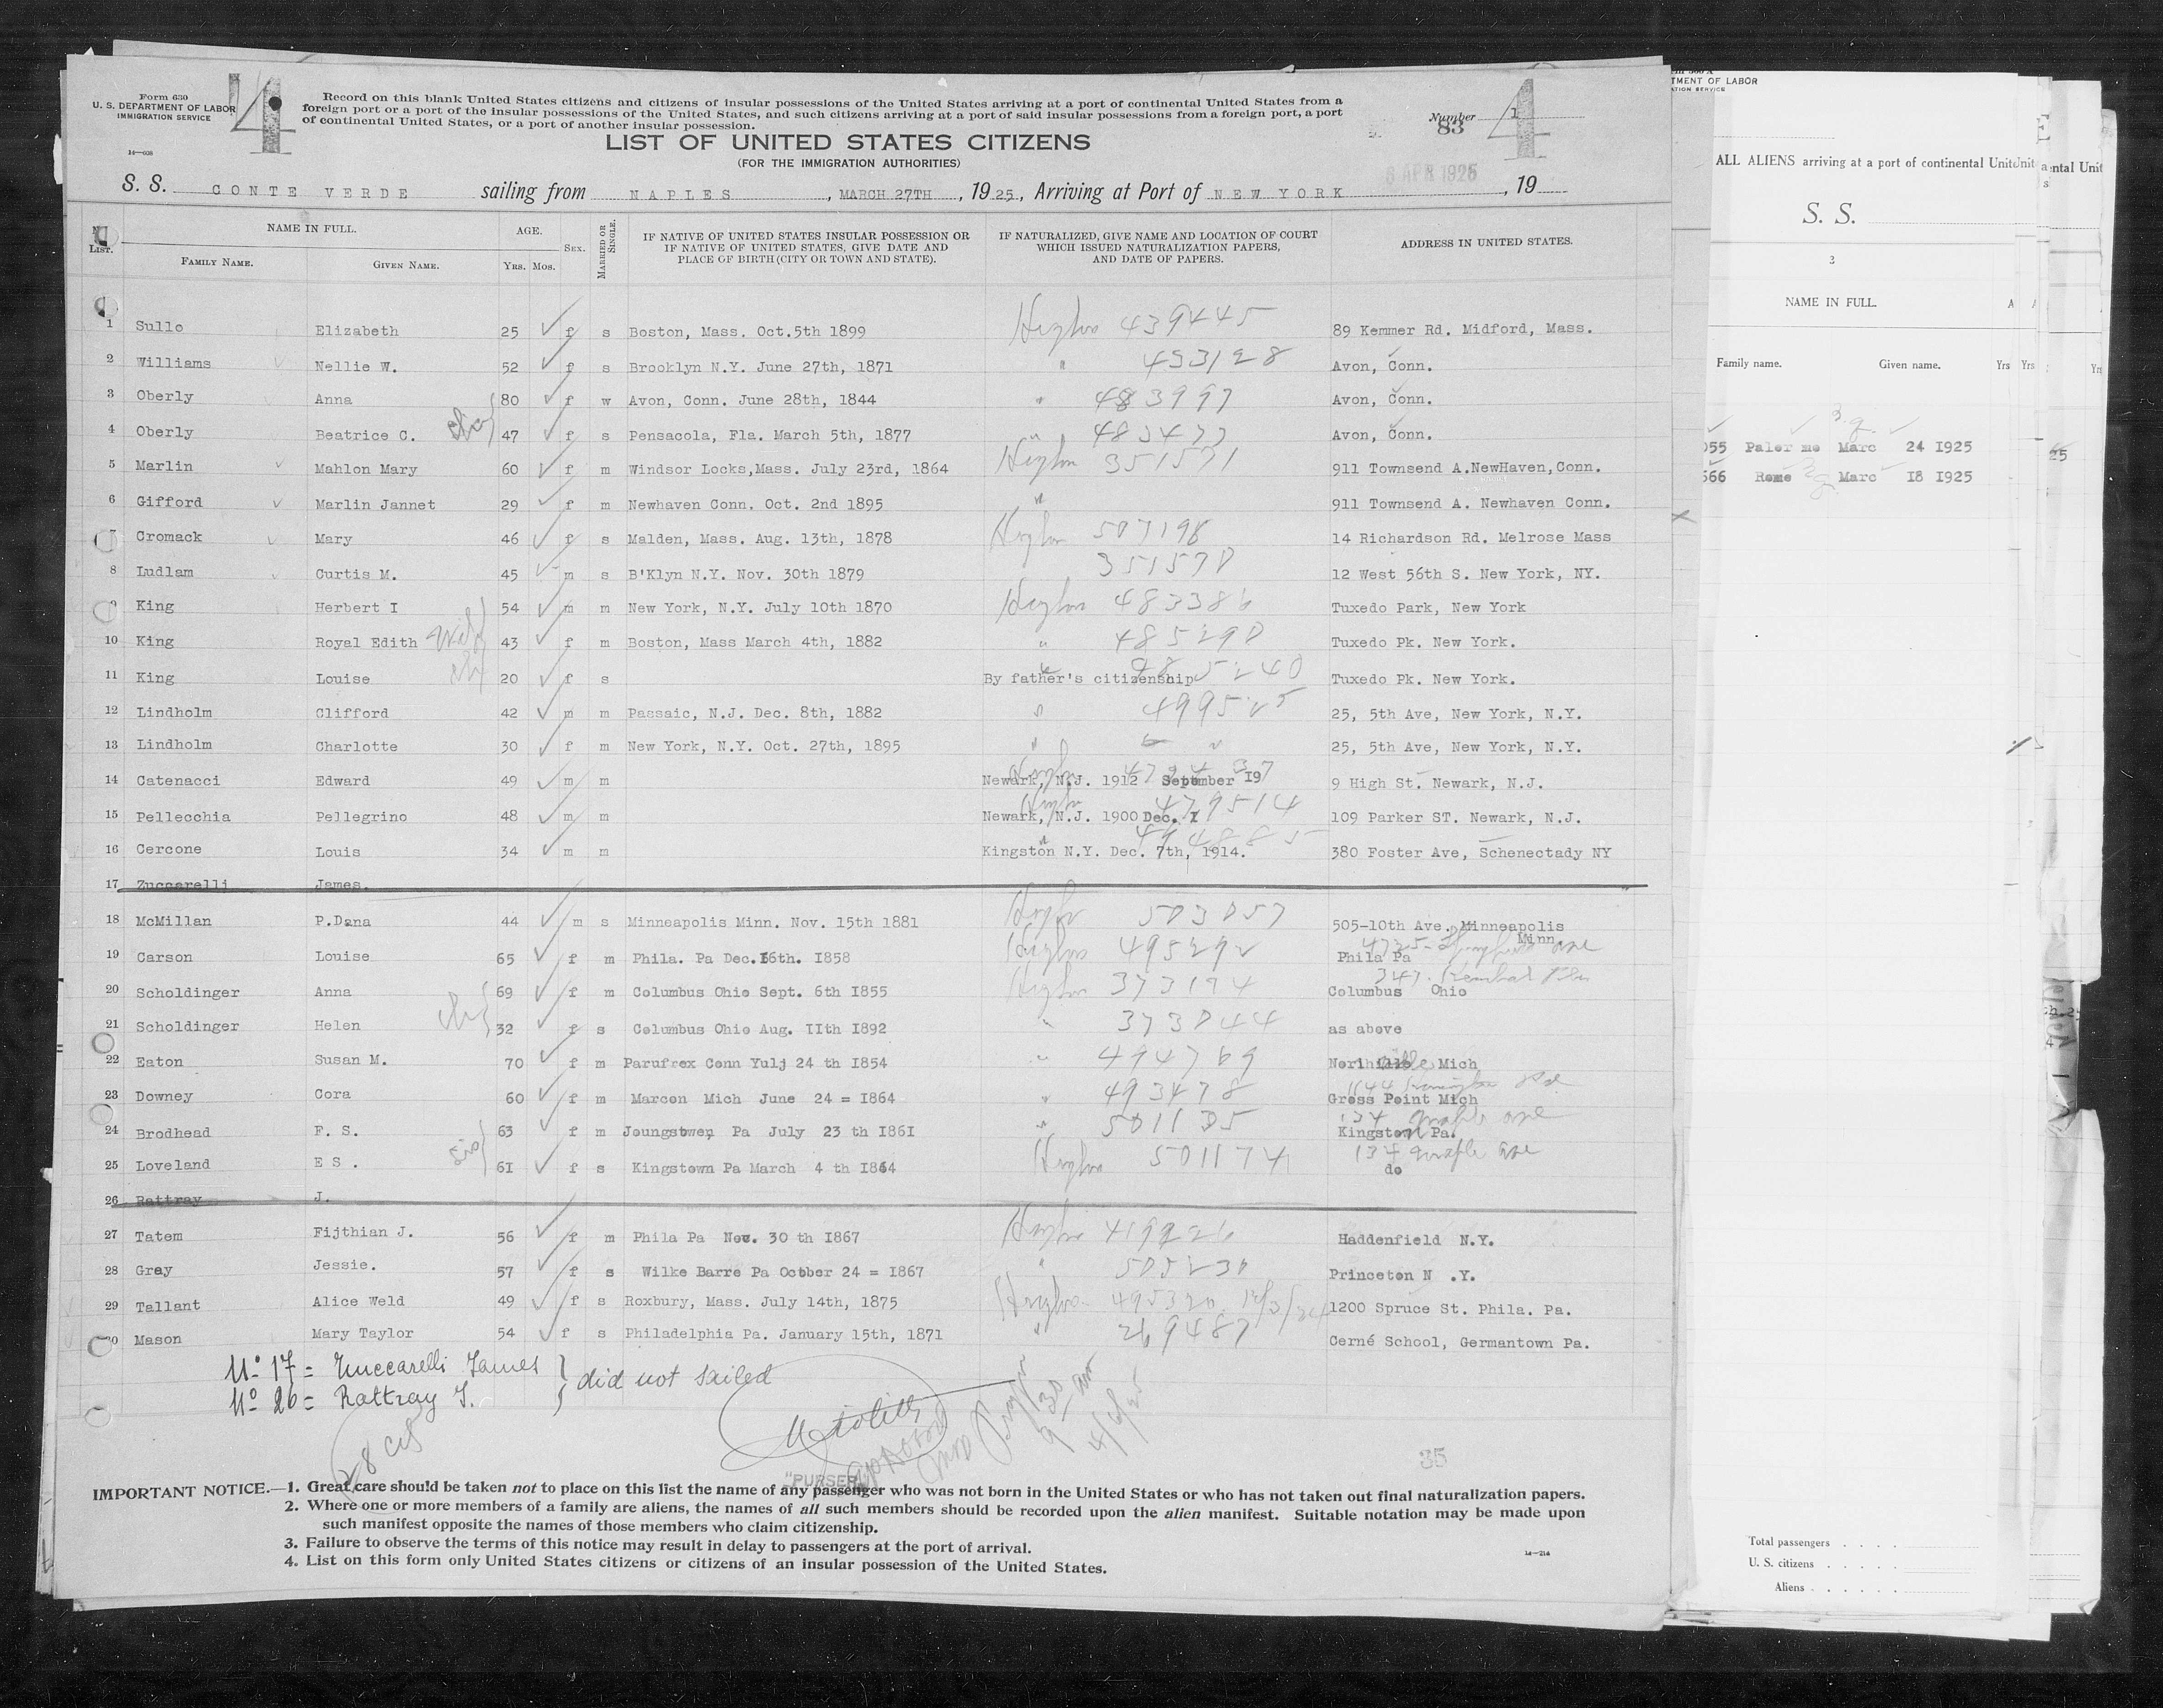 Form 630
U. S. DEPARTMENT OF LABOR
IMMIGRATION SERVICE
14—608
4
Record on this blank United States citizens and citizens of insular possessions of the United States arriving at a port of continental United States from a
foreign port or a port of the insular possessions of the United States, and such citizens arriving at a port of said insular possessions from a foreign port, a port
of continental United States, or a port of another insular possession.
Number 1
83
4
LIST OF UNITED STATES CITIZENS
(FOR THE IMMIGRATION AUTHORITIES)
S. S. CONTE VERDE sailing from NAPLES, MARCH 27TH, 1925, Arriving at Port of NEW YORK, 19
APR 1925
LIST. NAME IN FULL. AGE. SEX. MARRIED OR SINGLE. IF NATIVE OF UNITED STATES INSULAR POSSESSION OR IF NATIVE OF UNITED STATES, GIVE DATE AND PLACE OF BIRTH (CITY OR TOWN AND STATE). IF NATURALIZED, GIVE NAME AND LOCATION OF COURT WHICH ISSUED NATURALIZATION PAPERS, AND DATE OF PAPERS. ADDRESS IN UNITED STATES.
FAMILY NAME. GIVEN NAME. YRS. MOS.
1 Sullo Elizabeth 25 f s Boston, Mass. Oct.5th 1899 439445 89 Kemmer Rd. Midford, Mass.
2 Williams Nellie W. 52 f s Brooklyn N.Y. June 27th, 1871 " 453128 Avon, Conn.
3 Oberly Anna 80 f w Avon, Conn. June 28th, 1844 " 483997 Avon, Conn.
4 Oberly Beatrice C. 47 f s Pensacola, Fla. March 5th, 1877 " 483477 Avon, Conn.
5 Marlin Mahlon Mary 60 f m Windsor Locks,Mass. July 23rd, 1864 351571 911 Townsend A.NewHaven,Conn.
6 Gifford Marlin Jannet 29 f m Newhaven Conn. Oct. 2nd 1895 " 911 Townsend A. Newhaven Conn.
7 Cromack Mary 46 f s Malden, Mass. Aug. 13th, 1878 507198 14 Richardson Rd. Melrose Mass
8 Ludlam Curtis M. 45 m s B'Klyn N.Y. Nov. 30th 1879 351570 12 West 56th S. New York, NY.
9 King Herbert I 54 m m New York, N.Y. July 10th 1870 483386 Tuxedo Park, New York
10 King Royal Edith Wife 43 f m Boston, Mass March 4th, 1882 " 485290 Tuxedo Pk. New York.
11 King Louise 20 f s By father's citizenship 485240 Tuxedo Pk. New York.
12 Lindholm Clifford 42 m m Passaic, N.J. Dec. 8th, 1882 " 499525 25, 5th Ave, New York, N.Y.
13 Lindholm Charlotte 30 f m New York, N.Y. Oct. 27th, 1895 " 25, 5th Ave, New York, N.Y.
14 Catenacci Edward 49 m m Newark, N.J. 1912 September 197 9 High St. Newark, N.J.
15 Pellecchia Pellegrino 48 m m Newark, N.J. 1900 Dec. 479514 109 Parker ST. Newark, N.J.
16 Cercone Louis 34 m m Kingston N.Y. Dec. 7th, 1914. 380 Foster Ave, Schenectady NY
17 Zuccarelli James.
18 McMillan P.Dana 44 m s Minneapolis Minn. Nov. 15th 1881 503057 505-10th Ave. Minneapolis Minn
19 Carson Louise 65 f m Phila. Pa Dec.16th. I858 495292 Phila Pa
20 Scholdinger Anna 69 f m Columbus Ohio Sept. 6th I855 373194 Columbus Ohio
21 Scholdinger Helen 32 f s Columbus Ohio Aug. IIth I892 " 373044 as above
22 Eaton Susan M. 70 f m Parufrex Conn Yulj 24 th I854 " 494769 Mich
23 Downey Cora 60 f m Marcon Mich June 24 = I864 " 493478 Gross Point Mich
24 Brodhead F. S. 63 f m Joungstwen Pa July 23 th I86I " 501135 Kingston Pa.
25 Loveland E S . 6I f s Kingstown Pa March 4 th I864 501174 134 Maple ave do
26 Rattray J.
27 Tatem Fijthian J. 56 f m Phila Pa Nov. 30 th I867 Haddenfield N.Y.
28 Gray Jessie. 57 f s Wilke Barre Pa October 24 = I867 " 505230 Princeton N .Y.
29 Tallant Alice Weld 49 f s Roxbury, Mass. July 14th, 1875 495320 1200 Spruce St. Phila. Pa.
30 Mason Mary Taylor 54 f s Philadelphia Pa. January 15th, 1871 " 269487 Cerné School, Germantown Pa.
No 17 = Zuccarelli James } did not sailed
No 26 = Rattray J.
28 cit
"PURSER"
35
IMPORTANT NOTICE.—1. Great care should be taken not to place on this list the name of any passenger who was not born in the United States or who has not taken out final naturalization papers.
2. Where one or more members of a family are aliens, the names of all such members should be recorded upon the alien manifest. Suitable notation may be made upon
such manifest opposite the names of those members who claim citizenship.
3. Failure to observe the terms of this notice may result in delay to passengers at the port of arrival.
4. List on this form only United States citizens or citizens of an insular possession of the United States.
14—214
TMENT OF LABOR
ALL ALIENS arriving at a port of continental Unit
S. S.
3
NAME IN FULL.
Family name. Given name. Yrs
055 Palermo Marc 24 I925
566 Rome Marc I8 I925
Total passengers
U. S. citizens
Aliens